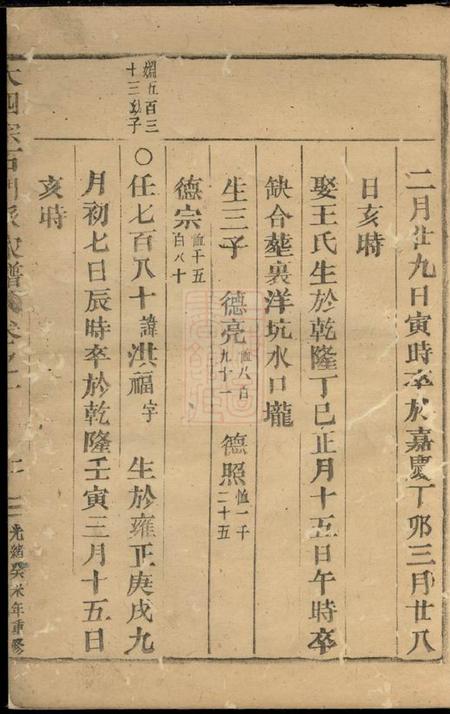 二月廿九日寅時卒於嘉慶丁卯三月廿八
日亥時
娶王氏生於乾隆丁巳正月十五日午時卒
缺合塟裏洋坑水口壠
生三子 德亮 恤八百九十一 德照 恤一千二十五
德宗 恤千五百八十
嫺五百三十三幼子
○任七百八十諱洪福字 生於雍正庚戌九
月初七日辰時卒於乾隆壬寅三月十五日
亥時
光緒癸未年重修